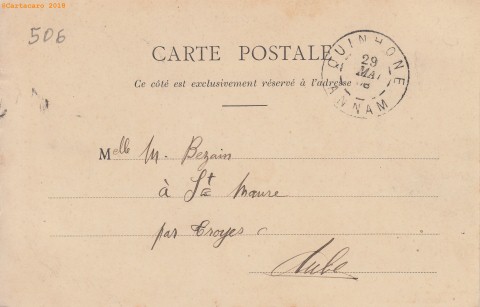 ©Cartacaro 2018
506
CARTE POSTALE
QUINHONE
29
MAI
ANNAM
Ce côté est exclusivement réservé à l'adresse
Melle M. Bezain
à Ste Maure
par Troyes
Aube